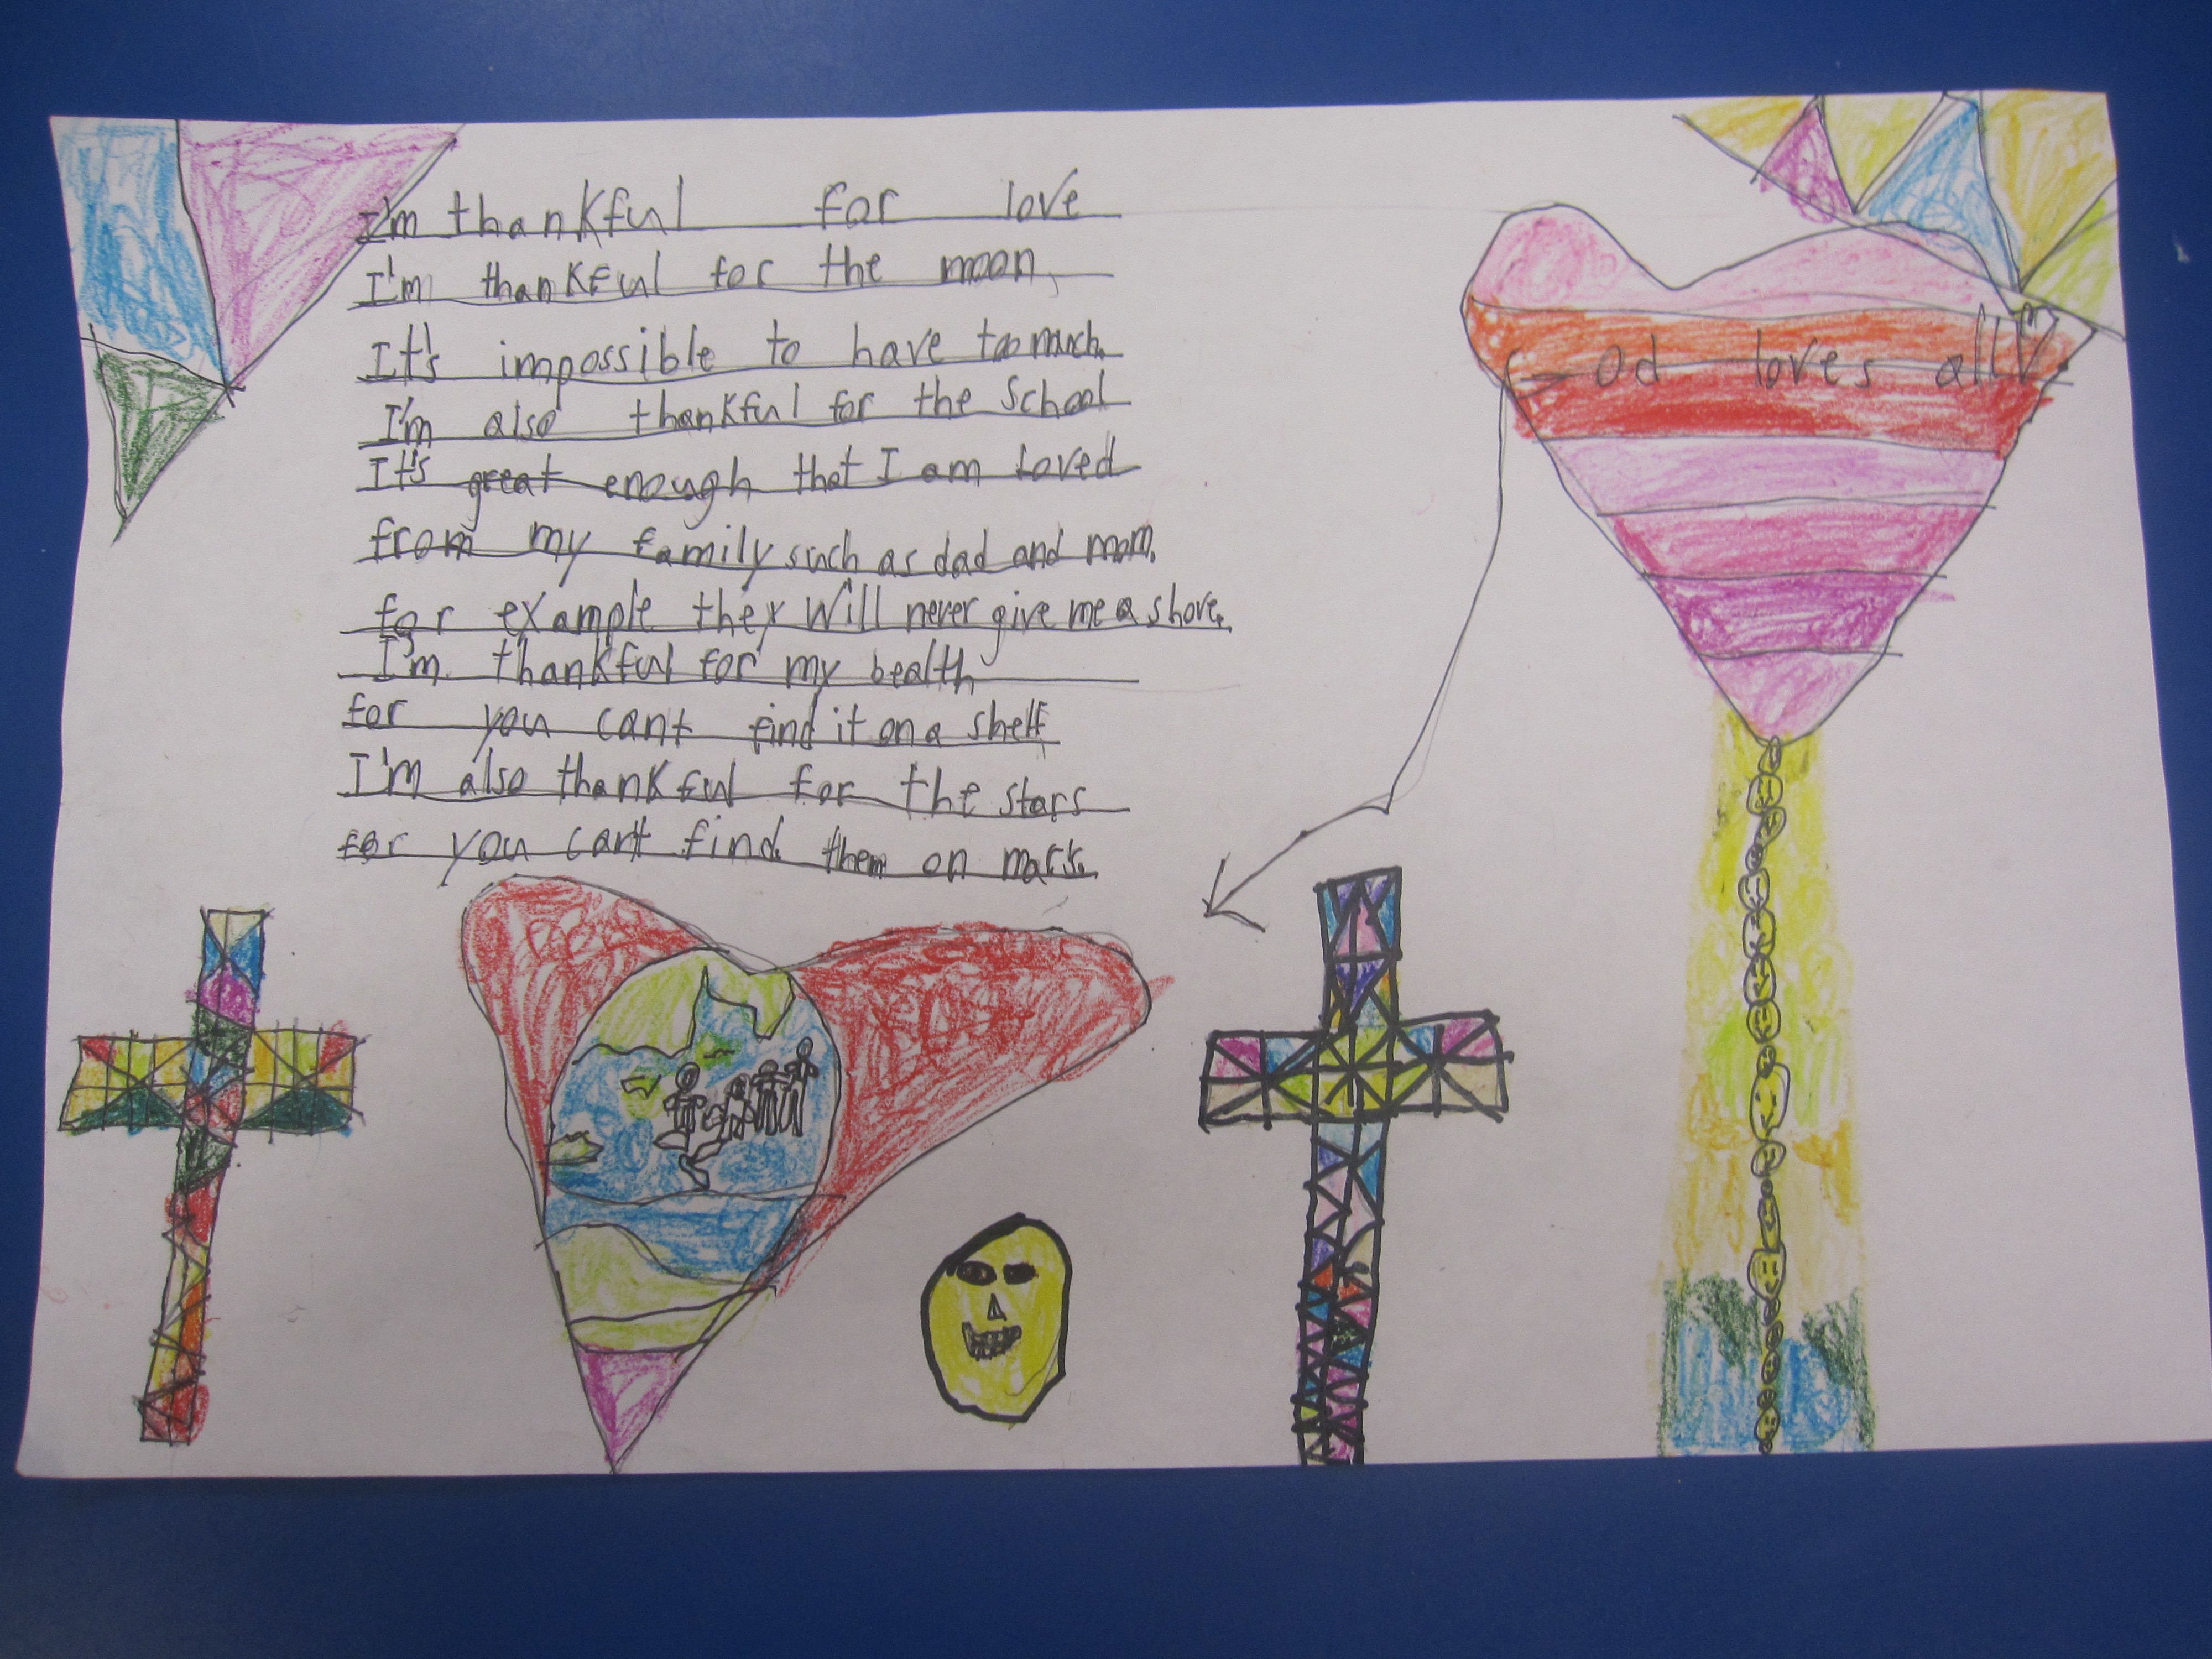 I'm thankful for love
I'm thankful for the moon,
It's impossible to have too much.
I'm also thankful for the school
It's great enough that I am loved
from my family such as dad and mom.
for example they will never give me a shove.
I'm thankful for my health
for you cant find it on a shelf
I'm also thankful for the stars
for you can't find them on mars.
God loves all